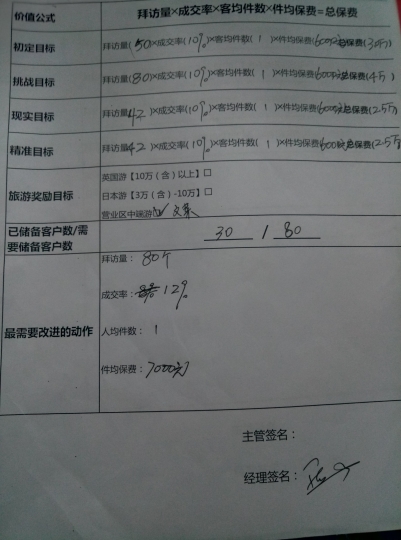 价值公式 拜访量×成交率×客均件数×件均保费=总保费
初定目标 拜访量(50)×成交率(10%)×客均件数(1)×件均保费(6000)总保费(3万)
挑战目标 拜访量(80)×成交率(10%)×客均件数(1)×件均保费(6000)总保费(4万)
现实目标 拜访量(42)×成交率(10%)×客均件数(1)×件均保费(6000)总保费(2.5万)
精准目标 拜访量(42)×成交率(10%)×客均件数(1)×件均保费(6000)总保费(2.5万)
英国游【10万(含)以上】□
旅游奖励目标 日本游【3万(含)-10万】□
营业区中端游
已储备客户数/需要储备客户数 30 / 80
拜访量: 80个
成交率: 12%
最需要改进的动作 人均件数: 1
件均保费: 7000元
主管签名:
经理签名: